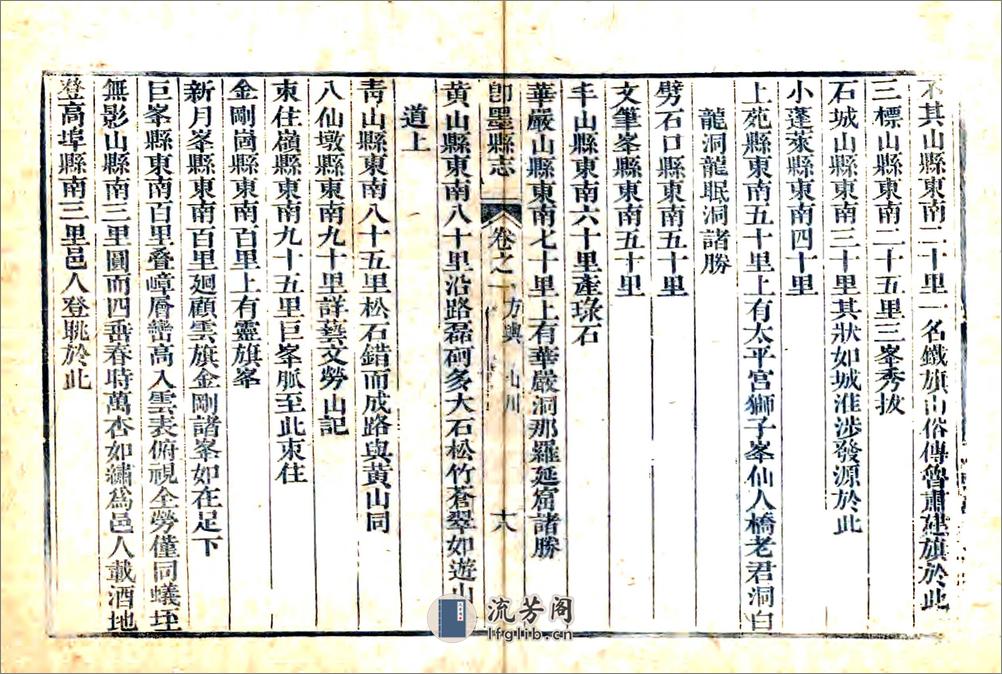 不其山縣東南二十里一名鐵旗山俗傳魯肅建旗於此
三標山縣東南二十五里三峯秀拔
石城山縣東南三十里其狀如城淮涉發源於此
小蓬萊縣東南四十里
上苑縣東南五十里上有太平宮獅子峯仙人橋老君洞白
龍洞龍眠洞諸勝
劈石口縣東南五十里
文筆峯縣東南五十里
丰山縣東南六十里產琭石
華嚴山縣東南七十里上有華嚴洞那羅延窟諸勝
卽墨縣志 卷之一 方輿 山川 十八
黃山縣東南八十里沿路磊砢多大石松竹蒼翠如遊山
道上
靑山縣東南八十五里松石錯而成路與黃山同
八仙墩縣東南九十里詳藝文勞山記
東住嶺縣東南九十五里巨峯脈至此東住
金剛崮縣東南百里上有靈旗峯
新月峯縣東南百里廻顧雲旗金剛諸峯如在足下
巨峯縣東南百里疊嶂層巒高入雲表俯視全勞僅同蟻垤
無影山縣南三里圓而四垂春時萬杏如繡爲邑人載酒地
登高埠縣南三里邑人登眺於此
流芳阁
lfglib.cn